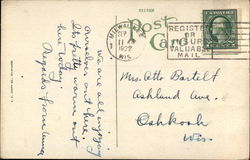 Post
Card
SEP
11
1922
WIS.
REGISTER
OR
INSURE
VALUABLE
MAIL
We are all enjoying
ourselves out here.
Its pretty warm out
here today.
Regards from
Mrs. Otto Bartelt
Ashland Ave.
Oshkosh
Wis.